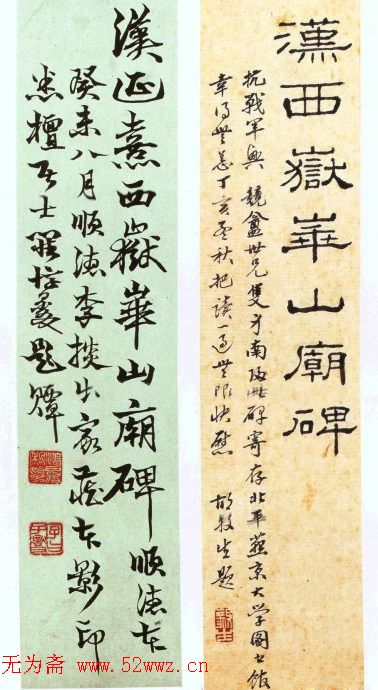 漢西嶽華山廟碑
抗戰軍興 競盦世兄隻身南渡此碑寄存北平燕京大学圖書館
幸得無恙丁亥孟秋把讀一過無限快慰 胡毅生題
漢延熹西嶽華山廟碑 順德本
癸未八月順德李棪出家藏本影印
悉檀居士羅惇㬊題
无为斋 www.52wwz.cn